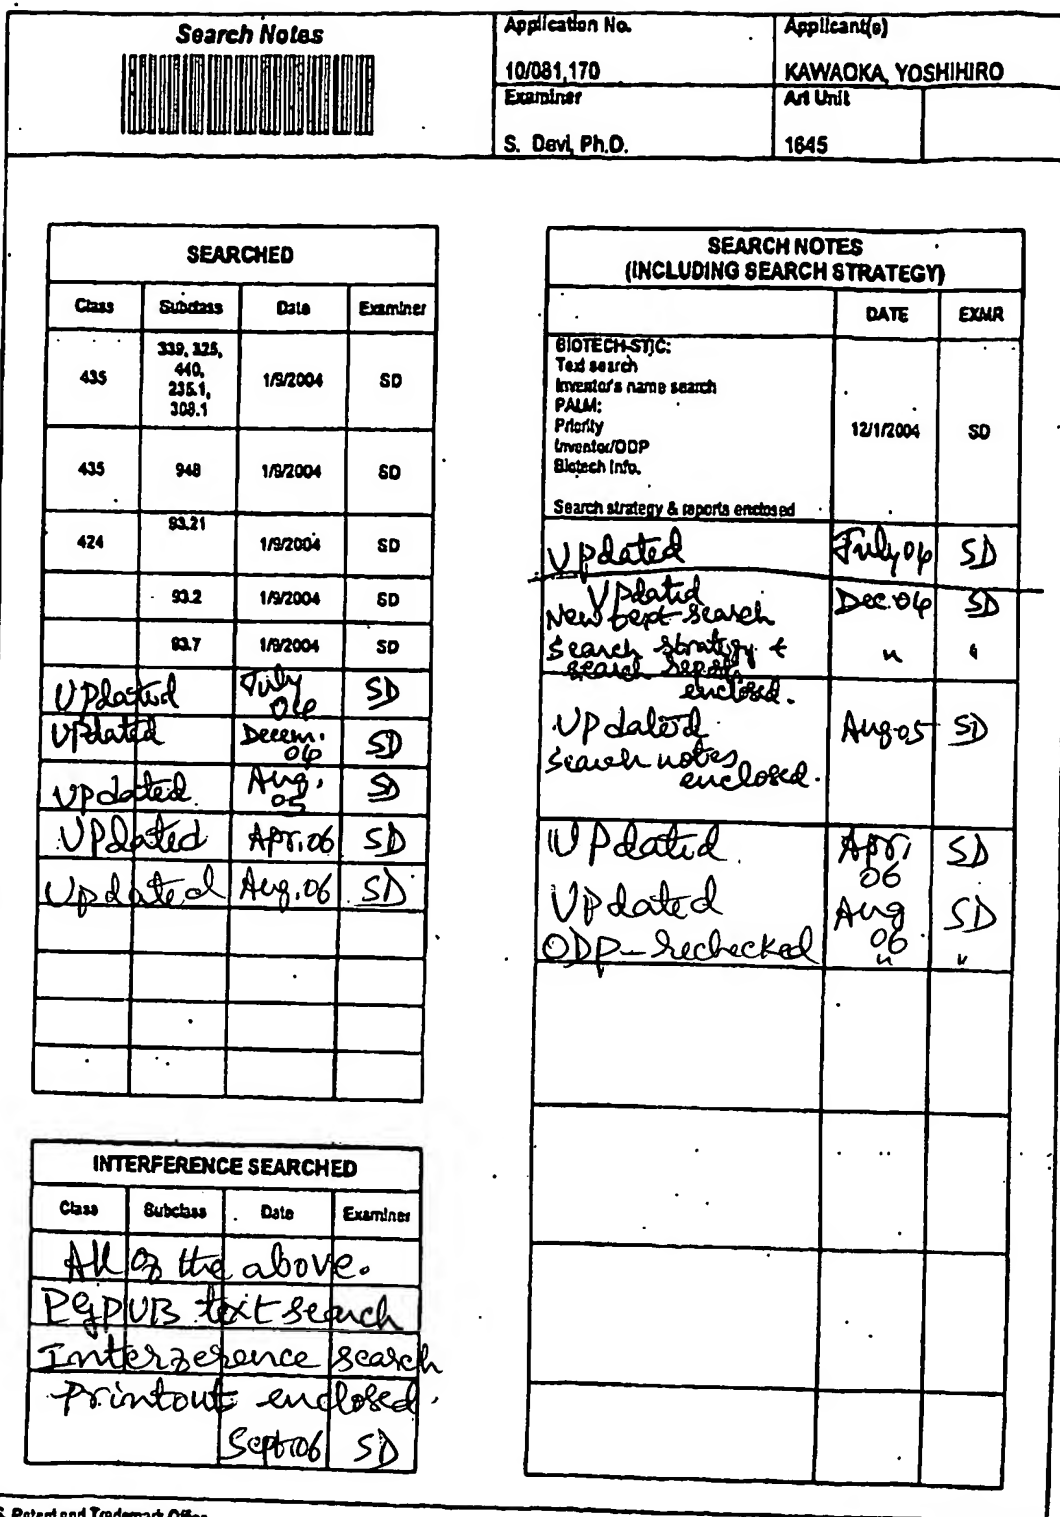 Search Notes
Application No.
Applicant(s)
10/081,170
KAWAOKA, YOSHIHIRO
Examiner
Art Unit
S. Devi, Ph.D.
1645
SEARCHED
Class Subclass Date Examiner
435 339, 325, 440, 235.1, 308.1 1/9/2004 SD
435 948 1/9/2004 SD
424 93.21 1/9/2004 SD
93.2 1/9/2004 SD
93.7 1/9/2004 SD
Updated July 04 SD
Updated Decem. 04 SD
Updated Aug. 05 SD
Updated Apr. 06 SD
Updated Aug. 06 SD
INTERFERENCE SEARCHED
Class Subclass Date Examiner
All of the above.
PGPUB text search
Interference search
Printout enclosed.
Sept 06 SD
SEARCH NOTES
(INCLUDING SEARCH STRATEGY)
DATE EXMR
BIOTECH-STIC:
Text search
Inventor's name search
PALM:
Priority
Inventor/ODP
Biotech Info.
12/1/2004 SD
Search strategy & reports enclosed
Updated July 04 SD
Updated Dec. 04 SD
New text search
Search strategy & " "
search reports
enclosed.
Updated Aug-05 SD
Search notes
enclosed.
Updated Apr. 06 SD
Updated Aug 06 SD
ODP-rechecked " "
S. Patent and Trademark Office